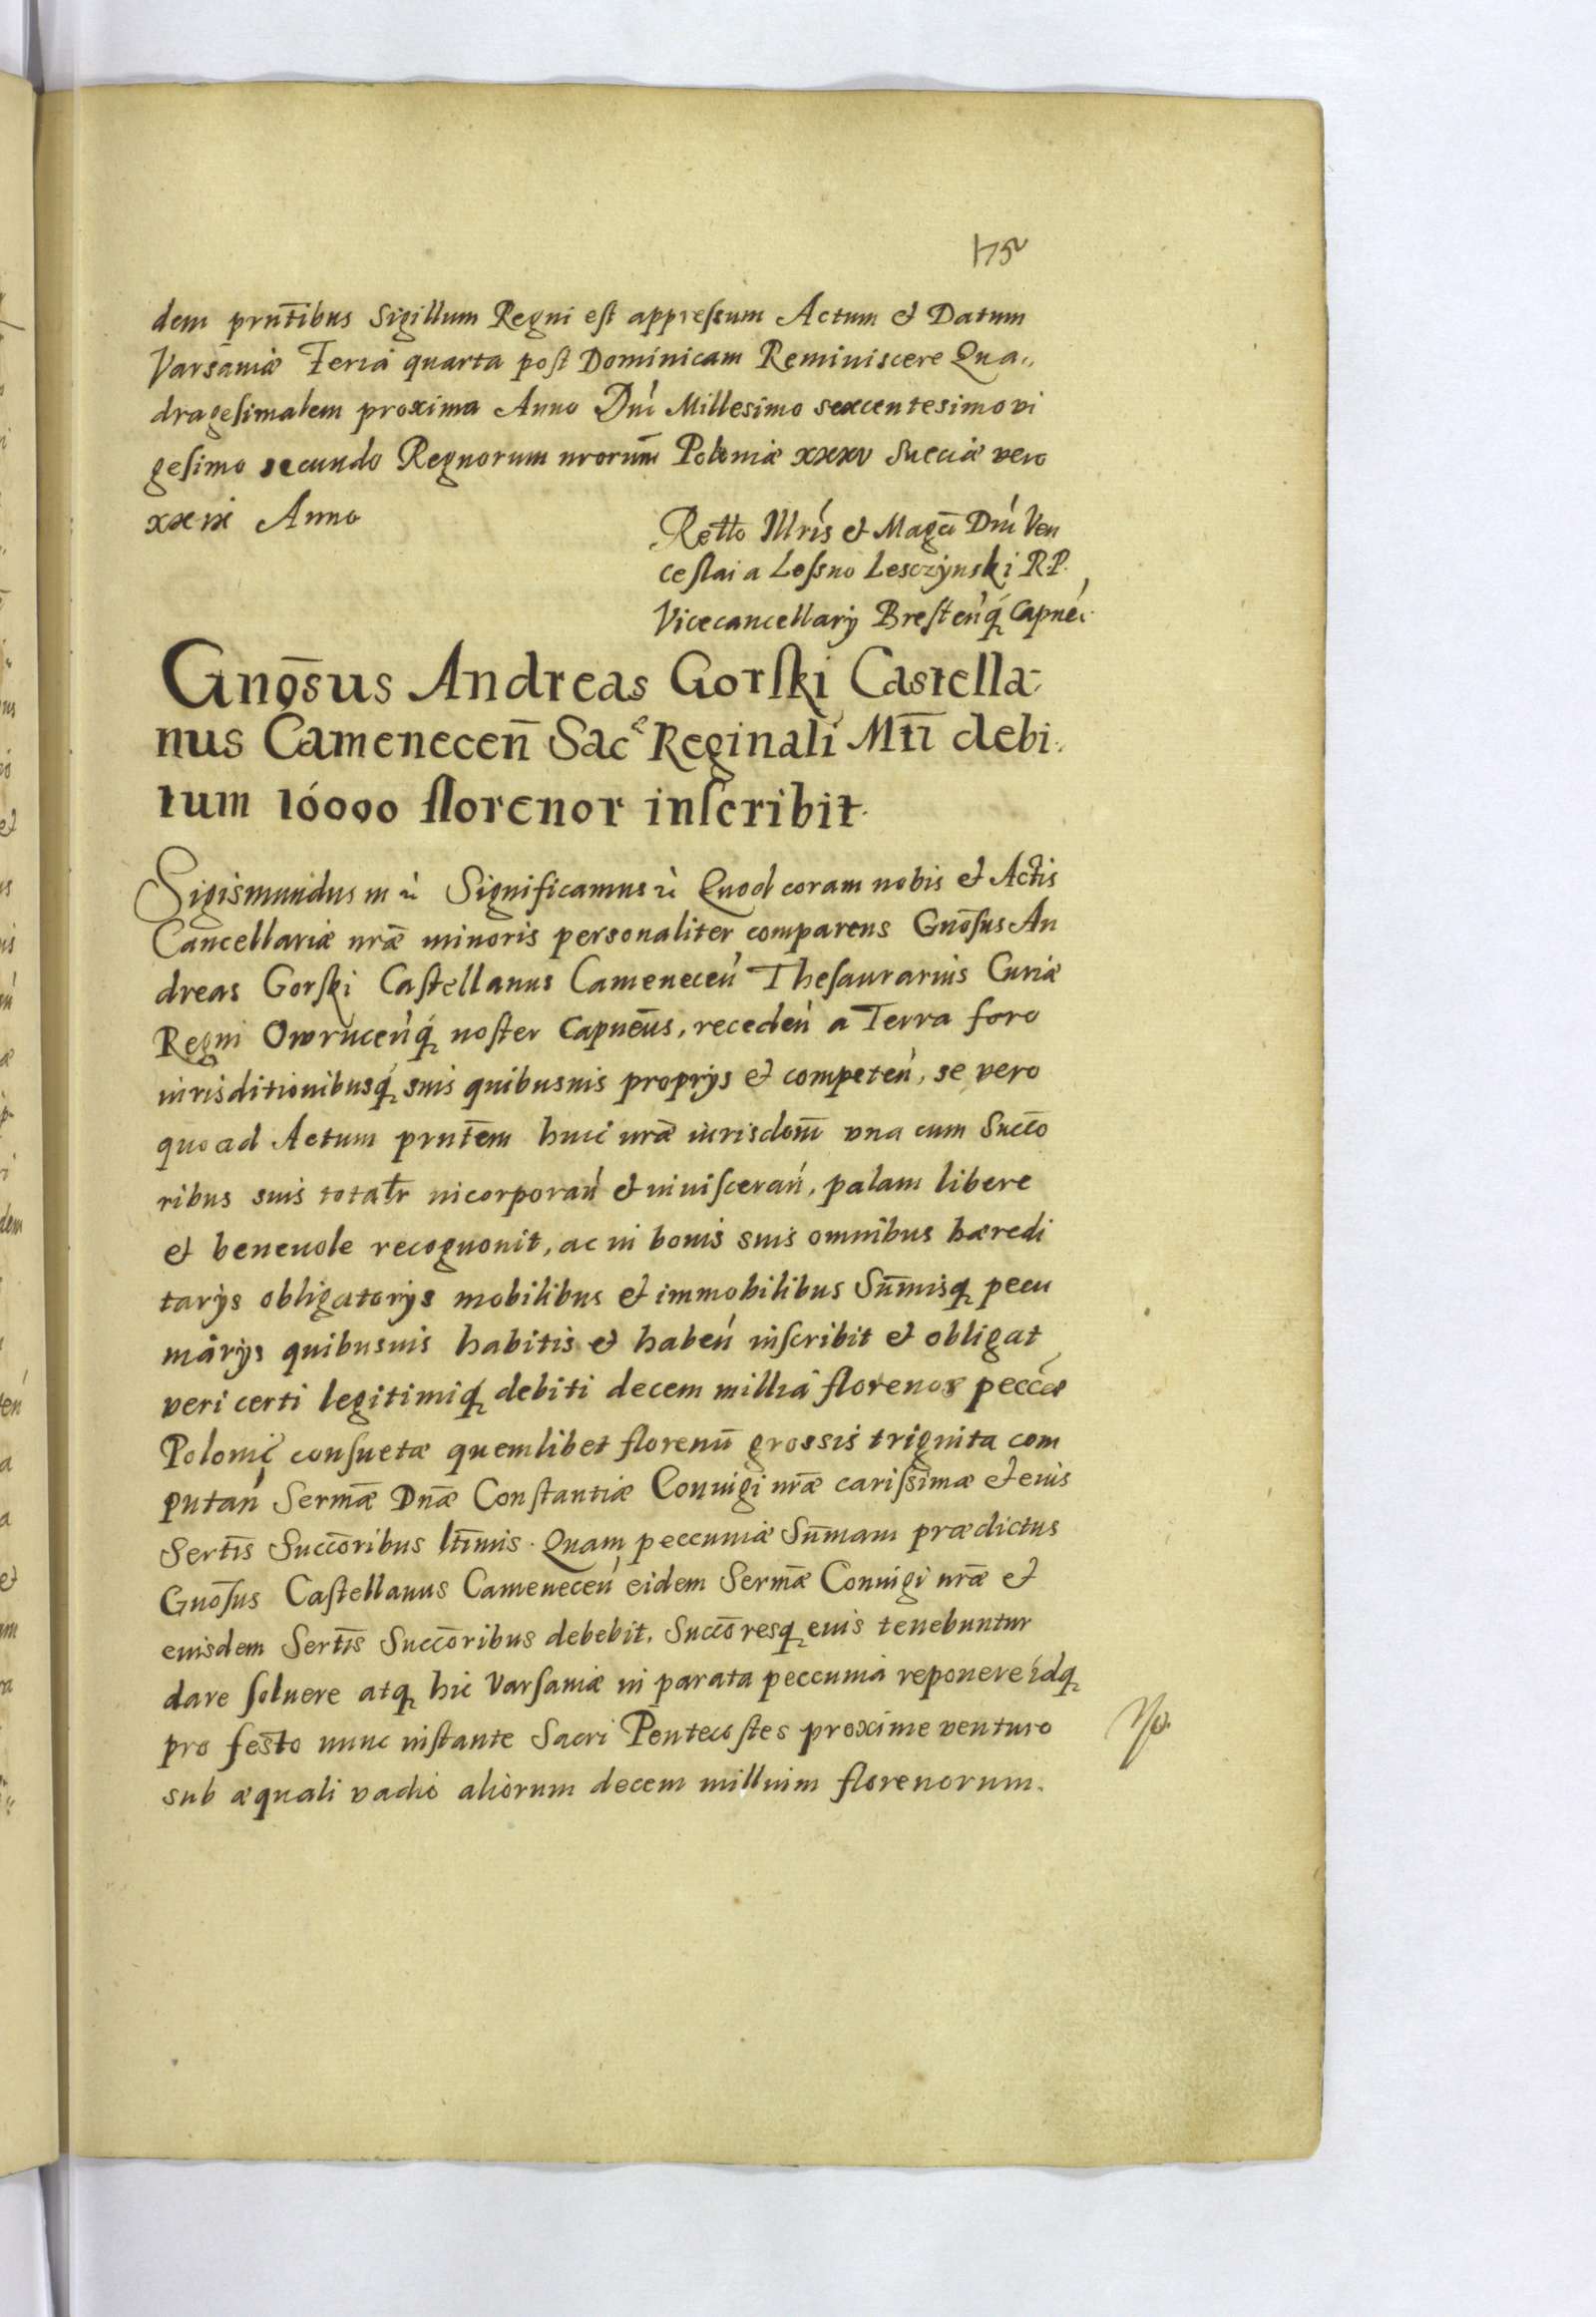 175
dem prñtibus Sigillum Regni est appressum Actum et Datum
Varsaviæ Feria quarta post Dominicam Reminiscere Qua,,
dragesimalem proxima Anno Dni Millesimo sexcentesimo vi
gesimo secundo Regnorum nrorum Poloniæ xxxv Sueciæ vero
xxix Anno
Retto Illris et Magci Dni Ven
ceslai a Lessno Lesczÿnski R.P.
Vicecancellarÿ Bresten q́ Capnei
Gnōsus Andreas Gorski Castella-
nus Camenecen̄ Sacꝛ Reginali Mtī debi.
tum 10000 florenor inscribit.
Sigismundus III etc Significamus etc Quod coram nobis et Actis
Cancellariæ nrǣ minoris personaliter comparens Gnōsus An
dreas Gorski Castellanus Camenecen̄ Thesaurarius Curiæ
Regni Owrucen̄q́ noster Capneus, receden̄ a Terra foro
iurisditionibusq́ suis quibusuis proprÿs et competen̄, se vero
quoad Actum prntēm huic nrǣ iurisdom̄ vna cum Succo
ribus suis totalr̄ incorporan̄ et inuisceran̄, palam libere
et beneuole recognouit, ac in bonis suis omnibus hæredi
tarÿs obligatorÿs mobilibus et immobilibus Sum̄isq pecu
niarÿs quibusuis habitis et haben̄ inscribit et obligat
veri certi legitimiq́ debiti decem millia florenor pecc̄æ
Polonic̄ consuetæ quemlibet florenū grossis triginta com
putan̄ Sermǣ Dnǣ Constantiæ Coniugi nrǣ carissimæ et eius
Sertīs Succōribus ltīmis. Quam peccuniæ Sum̄am prædictus
Gnōsus Castellanus Camenecen̄ eidem Sermǣ Coniugi nrǣ et
eiusdem Sertīs Succōribus debebit, Succōresq eius tenebuntur
dare soluere atq hic Varsaviæ in parata peccunia reponere idq
pro festo nunc instante Sacri Pentecostes proxime venturo
sub æquali vadio aliorum decem millium florenorum.